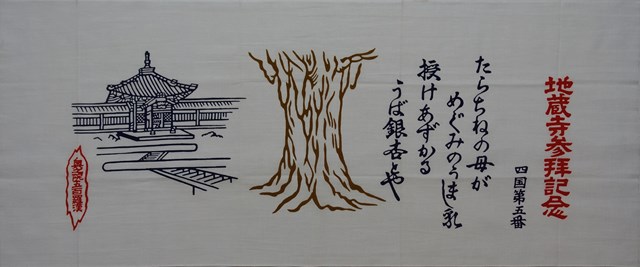 地蔵寺参拝記念
四国第五番
たらちねの母が
めぐみのうまし乳
授けあずかる
うば銀杏とや
奥之院五百羅漢